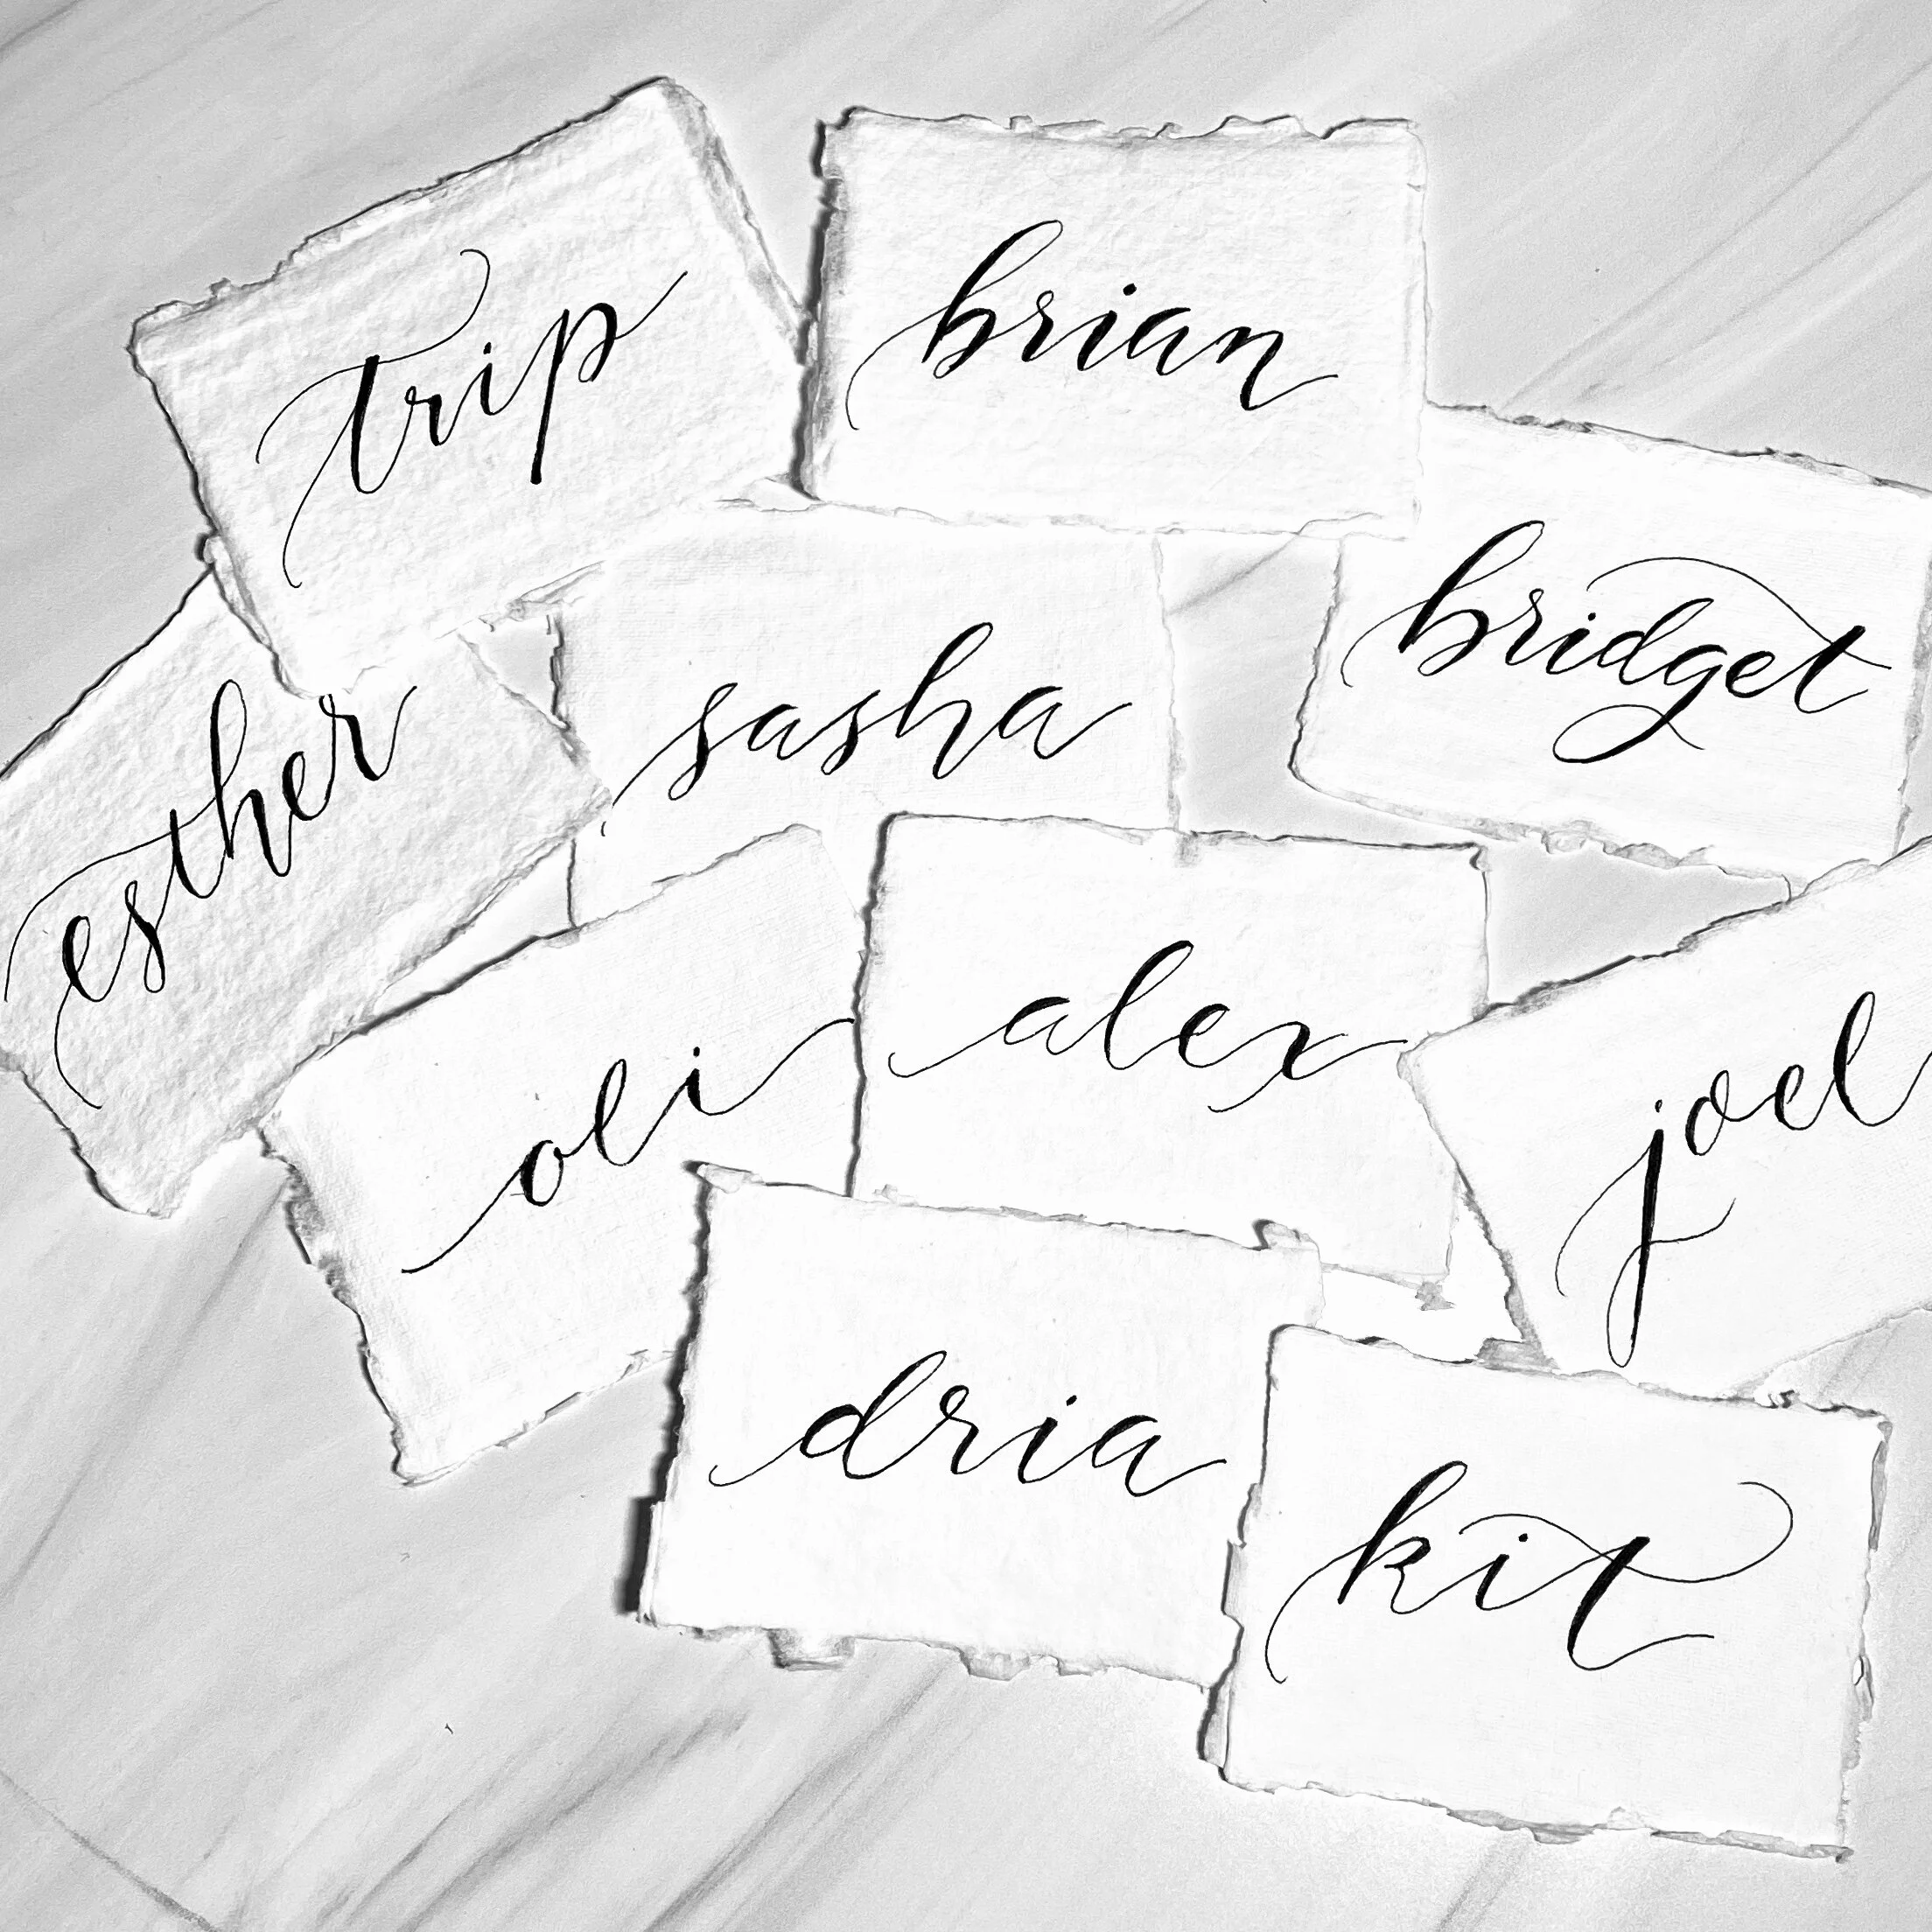 trip
brian
bridget
sasha
esther
alex
oli
joel
dria
kit